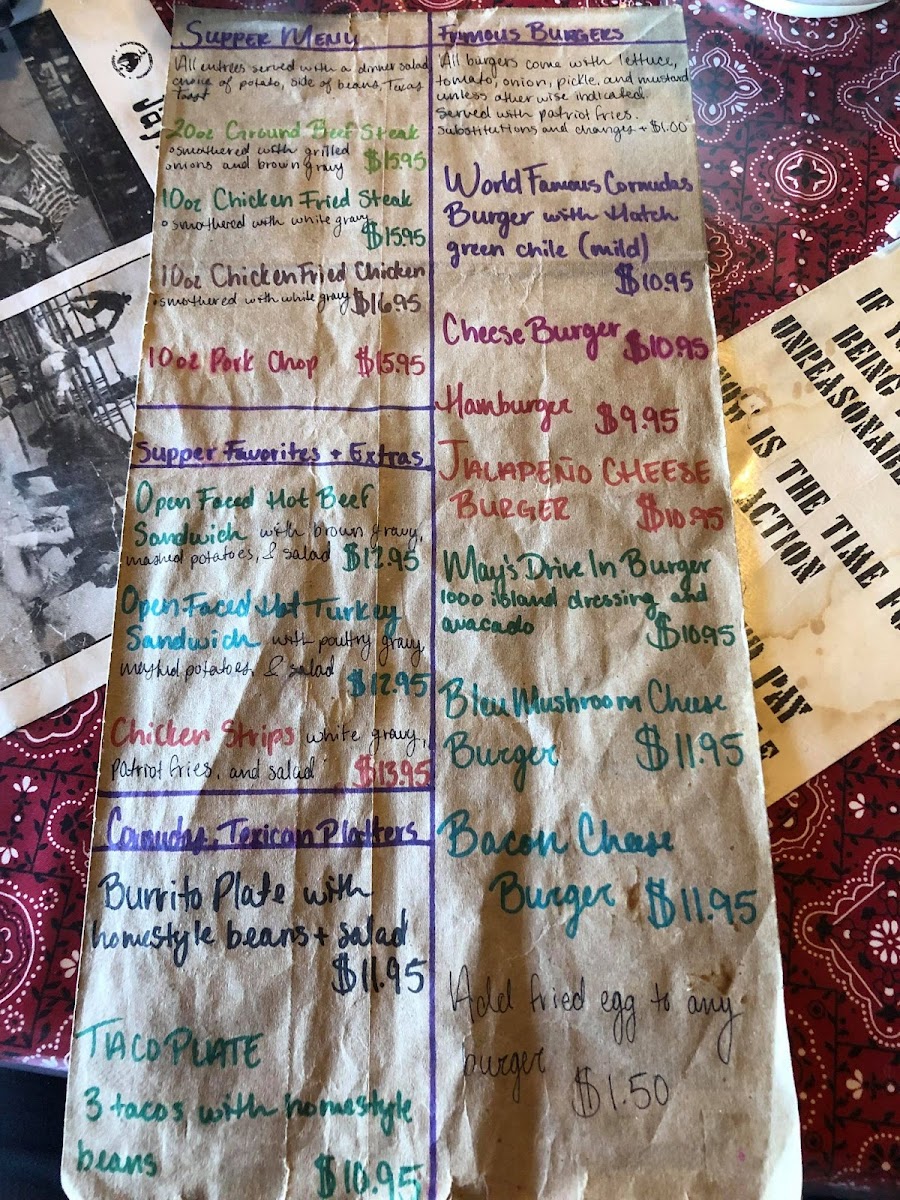 SUPPER MENU
All entrees served with a dinner salad,
choice of potato, side of beans, Texas
Toast
20oz Ground Beef Steak
• smothered with grilled
onions and brown gravy $15.95
10oz Chicken Fried Steak
• smothered with white gravy
$15.95
10oz Chicken Fried Chicken
• smothered with white gravy $16.95
10oz Pork Chop $15.95
Supper Favorites + Extras
Open Faced Hot Beef
Sandwich with brown gravy,
mashed potatoes, & salad $12.95
Open Faced Hot Turkey
Sandwich with poultry gravy,
mashed potatoes, & salad
$12.95
Chicken Strips white gravy,
patriot fries, and salad $13.95
Cornudas, Texican Platters
Burrito Plate with
homestyle beans + salad
$11.95
TACO PLATE
3 tacos with homestyle
beans
$10.95
FAMOUS BURGERS
All burgers come with lettuce,
tomato, onion, pickle, and mustard
unless other wise indicated.
served with patriot fries.
substitutions and changes + $1.00
World Famous Cornudas
Burger with Hatch
green chile (mild)
$10.95
Cheese Burger $10.95
Hamburger $9.95
JALAPEÑO CHEESE
BURGER $10.95
May's Drive In Burger
1000 island dressing and
avacado $10.95
Bleu Mushroom Cheese
Burger $11.95
Bacon Cheese
Burger $11.95
Add fried egg to any
burger
$1.50
IF
BEING
UNREASONABLE
NOW IS THE TIME
ACTION
PAY